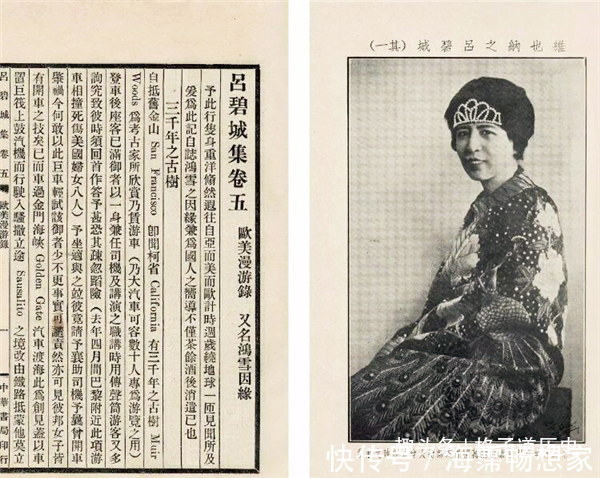 呂碧城集卷五
歐美漫游錄 又名鴻雪因緣
予此行隻身重洋翛然遐往自亞而美而歐計時週歲繞地球一匝見聞所及
爰爲此記自誌鴻雪之因緣兼爲國人之嚮導不僅茶餘酒後消遣已也
三千年之古樹
自抵舊金山 San Francisco 卽聞柯省 California 有三千年之古樹 Muir
Woods 爲考古家所欣賞乃賃游車（乃大汽車可容數十人專爲游覽之用）
登車後座客已滿御者以一身兼任司機及講演之職講時用傳聲筒游客又多
詢究致彼時須回首作答予甚恐其疎忽蹈險（去年四月間巴黎附近此項游
車相撞死傷美國婦女八人）予坐適與之竝彼竟請予襄助司機予曩曾開車
肇禍今何敢以此巨車輕試該御者少不更事實可譴責然亦可見彼邦女子皆
有開車之技矣已而車過金門海峽 Golden Gate 汽車渡海此爲創見蓋以車
置巨筏上鼓汽機而行駛入騷撒立途 Sausalito 之境改由鐵路抵蒙他莫立
呂碧城集 卷五 歐美漫游錄
一
中華書局印行
維也納之呂碧城（其一）
趣头条
快传号／海绵畅想家